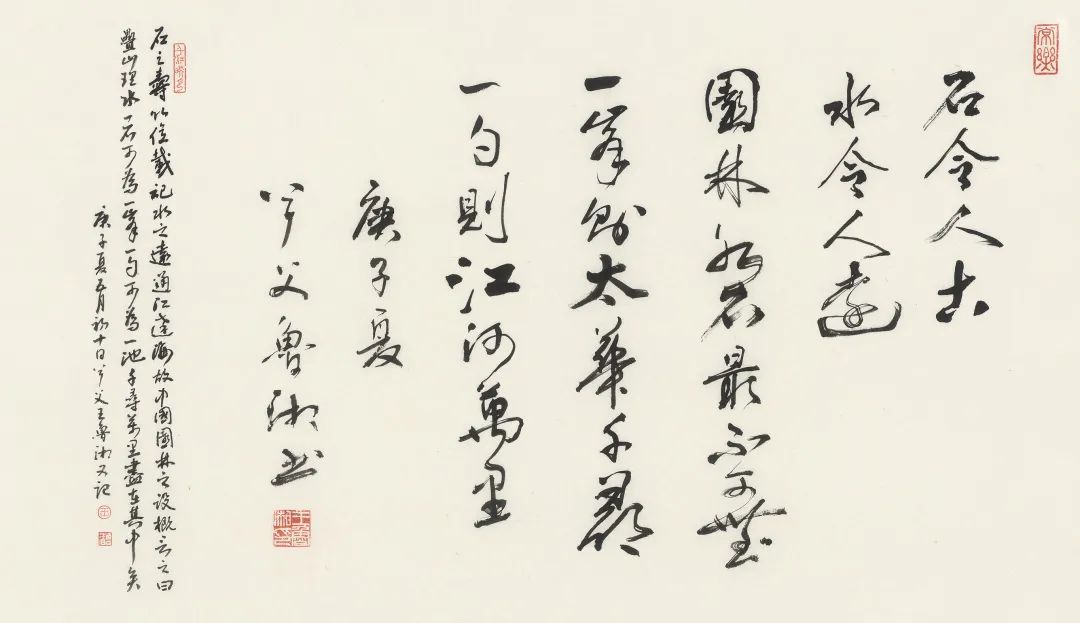 石令人古
水令人遠
園林水石最不可無
一峯則太華千尋
一勺則江河萬里
庚子夏
兮父魯湘书
石之壽以億載記水之遠通江達海故中國園林之设概言之曰
疊山理水一石可為一峯一勺可為一池千尋萬里盡在其中矣
庚子夏五月初十日兮父王魯湘又记
常樂